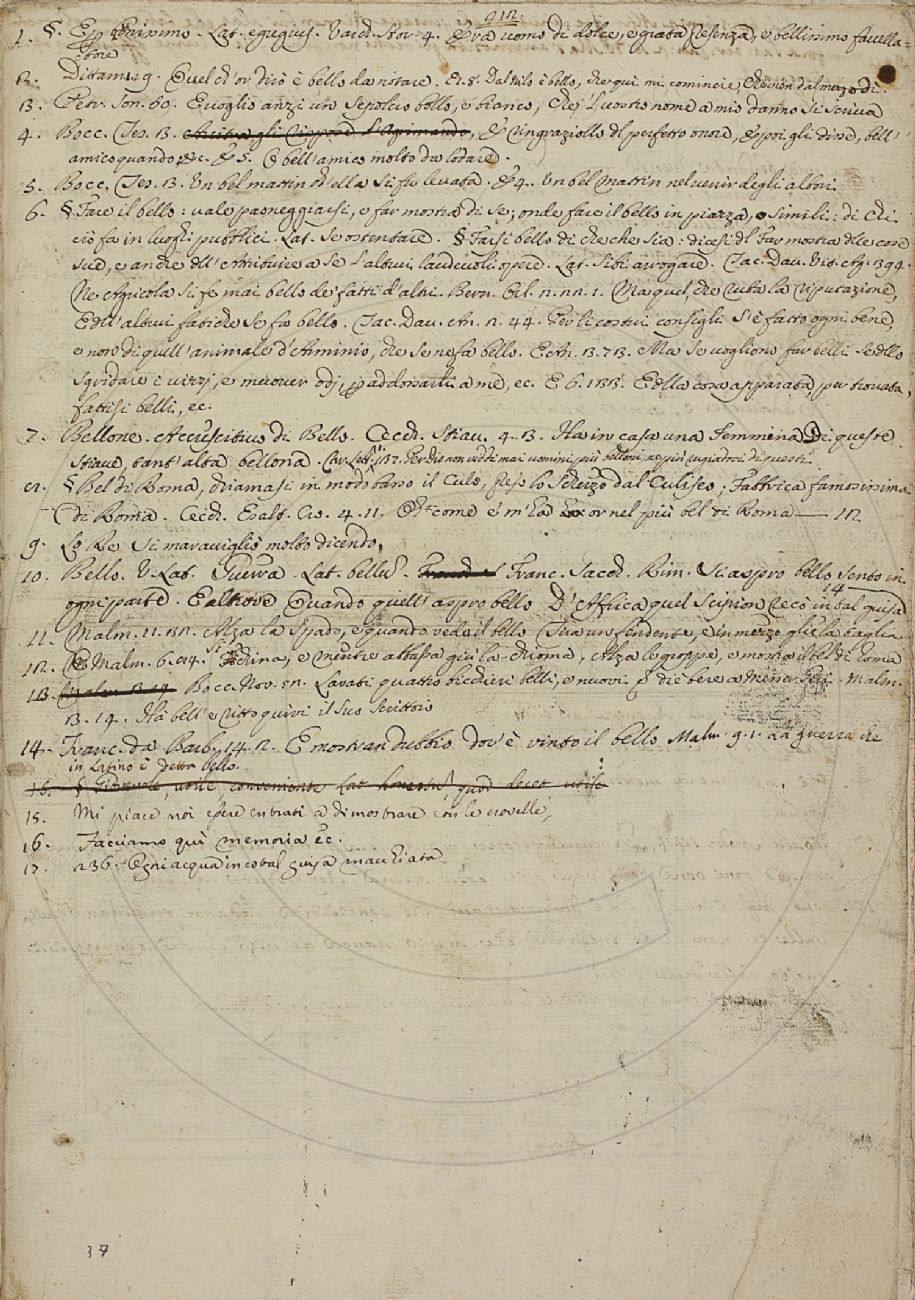 212.
1. §. Per Lat. egregius. Varch. Stor. 4. Era uomo di dolce, e grata presenza, e bellissimo favella=
tore
2. Dittam. 19. Quel ch'or dirò è bello da notare. Et. 8. Dal Nilo è bello, che qui mi comincie,
3. Petr. Son. 60. E voglio anzi un sepolcro bello, e bianco, Che 'l vostro nome a mio danno si scriva
4. Bocc. Tes. 13. E ringraziollo del perfetto onore, E poi gli disse, bell'
amico quando ec. E 5. O bell'amico molto da lodare.
5. Bocc. Tes. 13. Un bel mattin ch'ella si fu levata. E 4. Un bel mattin nel venir degli albori
6. § Fare il bello: vale pavoneggiarsi, e far mostra di se; onde fare il bello in piazza, e simili: di chi
ciò fa in luoghi pubblici. Lat. Se ostentare. § Farsi bello di che che sia: dicesi del Far mostra delle cose
sue, e anche dell'Attribuire a se l'altrui laudevoli opere. Lat. Sibi arrogare. Tac. Dav. Vit. Agr. 394.
Ne Agricola si fe mai bello de' fatti d'altri. Bern. Orl. 2. 22. 1. Ma quel, che ruba la riputazione,
E dell'altrui fatiche se fa bello. Tac. Dav. An. 2. 44. Per li costui consigli s'è fatto ogni bene,
e non di quell'animale d'Arminio, che se ne fa bello. E An. 13. 713. Ma se vogliono far belli se dello
sgridare i vizzj, e muover odj, per addossarli a me, ec. E 6. 133. E della cosa apparata, per trovata,
fattisi belli, ec.
7. Bellone. Accrescitivo di Bello. Cecch. Stiav. 4. 3. Ha in casa una femmina di queste
stiave, tant'alta bellona. Car. Lett. 1. 132. Per dio non viddi mai uomini più belloni, ne più cugiatori di questi.
8. § Bel di Roma, chiamasi in modo basso il Culo, preso lo scherzo dal Culiseo; Fabbrica famosissima
di Roma. Cecch. Esalt. Cro. 4. 11. Oh come e' m'ha or nel più bel di Roma — 12
9. Lo Re si maravigliò molto dicendo,
10. Bello. V. Lat. Guerra. Lat. bellum. Franc. Sacch. Rim. Si aspro bello sento in
14
ogni parte. E altrove Quando quell'aspro bello D'Affrica quel Scipion recò in tal guisa
11. Malm. 11. 32. Alza la spada, e quando vede il bello Tira un fendente, e in mezzo glie la taglia
12. Malm. 6. 84. Si china, e mentre abbassa giù la chioma, Alza le groppe, e mostra il bel di Roma
13. Bocc. Nov. 52. Lavati quattro bicchieri belli, e nuovi. E diè bere a Messer Geri. Malm.
3. 14. Ha bell'e ritto quivi il suo scrittoio
14. Franc. da Barb. 14. 2. E mostran dubbio dov'è vinto il bello Malm. 9. 1. La guerra che
in Latino è detta bello.
15. § Giovevole, utile, conveniente Lat. honestum quod decet utile
15. Mi piace noi essere entrati a dimostrare con le novelle,
16. Facciamo qui memoria ec.
17. 236. Ogni acqua in cotal guisa macchiata
37